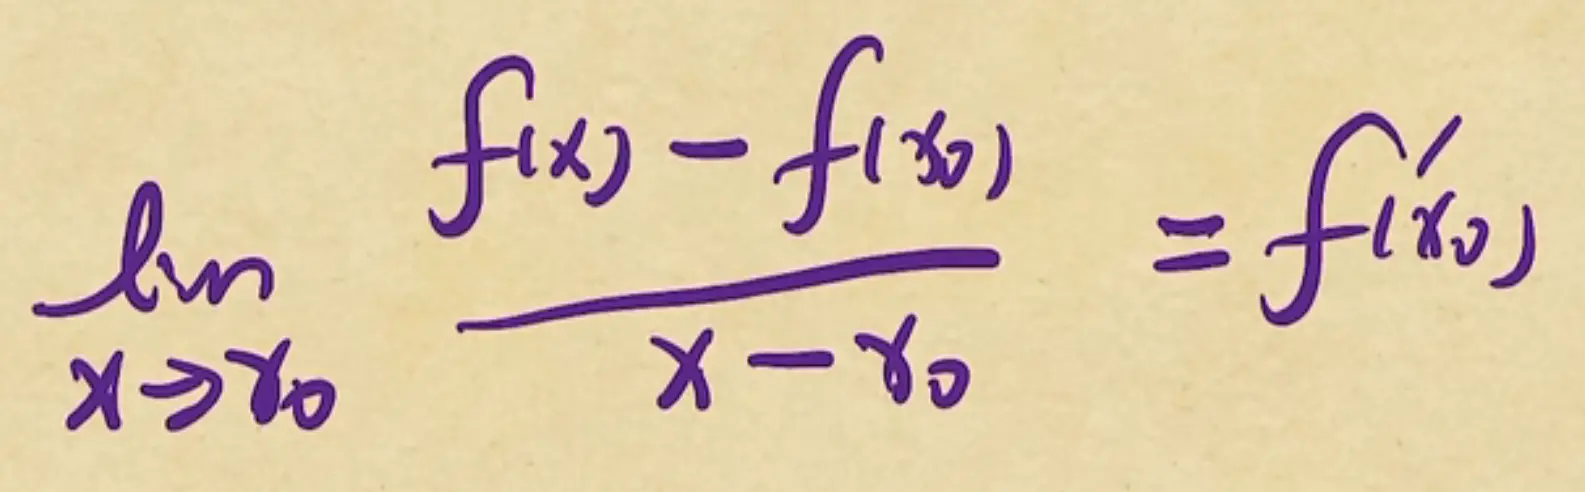 lim x→x₀ (f(x) - f(x₀)) / (x - x₀) = f′(x₀)